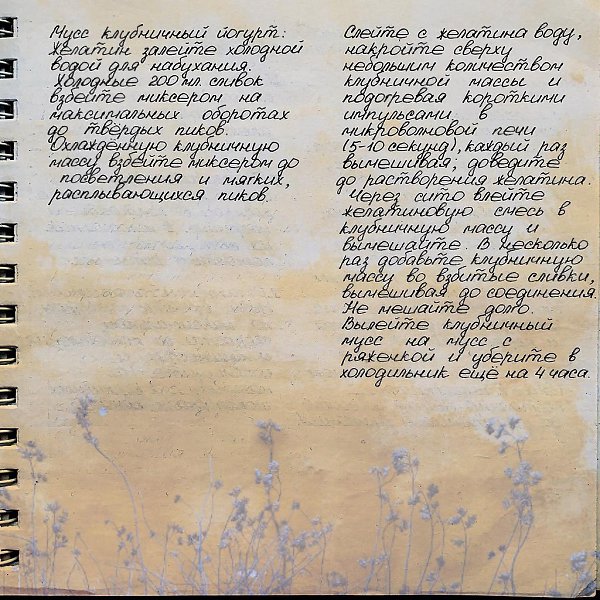 Мусс клубничный йогурт:
Желатин залейте холодной
водой для набухания.
Холодные 200 мл. сливок
взбейте миксером на
максимальных оборотах
до твёрдых пиков.
Охлаждённую клубничную
массу взбейте миксером до
посветления и мягких,
расплывающихся пиков.
Слейте с желатина воду,
накройте сверху
небольшим количеством
клубничной массы и
подогревая короткими
импульсами в
микроволновой печи
(5-10 секунд), каждый раз
вымешивая, доведите
до растворения желатина.
Через сито влейте
желатиновую смесь в
клубничную массу и
вымешайте. В несколько
раз добавьте клубничную
массу во взбитые сливки,
вымешивая до соединения.
Не мешайте долго.
Вылейте клубничный
мусс на мусс с
ряженкой и уберите в
холодильник ещё на 4 часа.